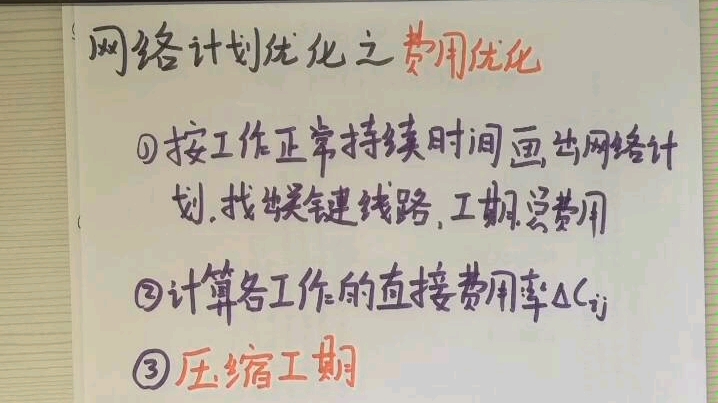 网络计划优化之费用优化
①按工作正常持续时间画出网络计
划,找出关键线路,工期.总费用
②计算各工作的直接费用率ΔCij
③压缩工期